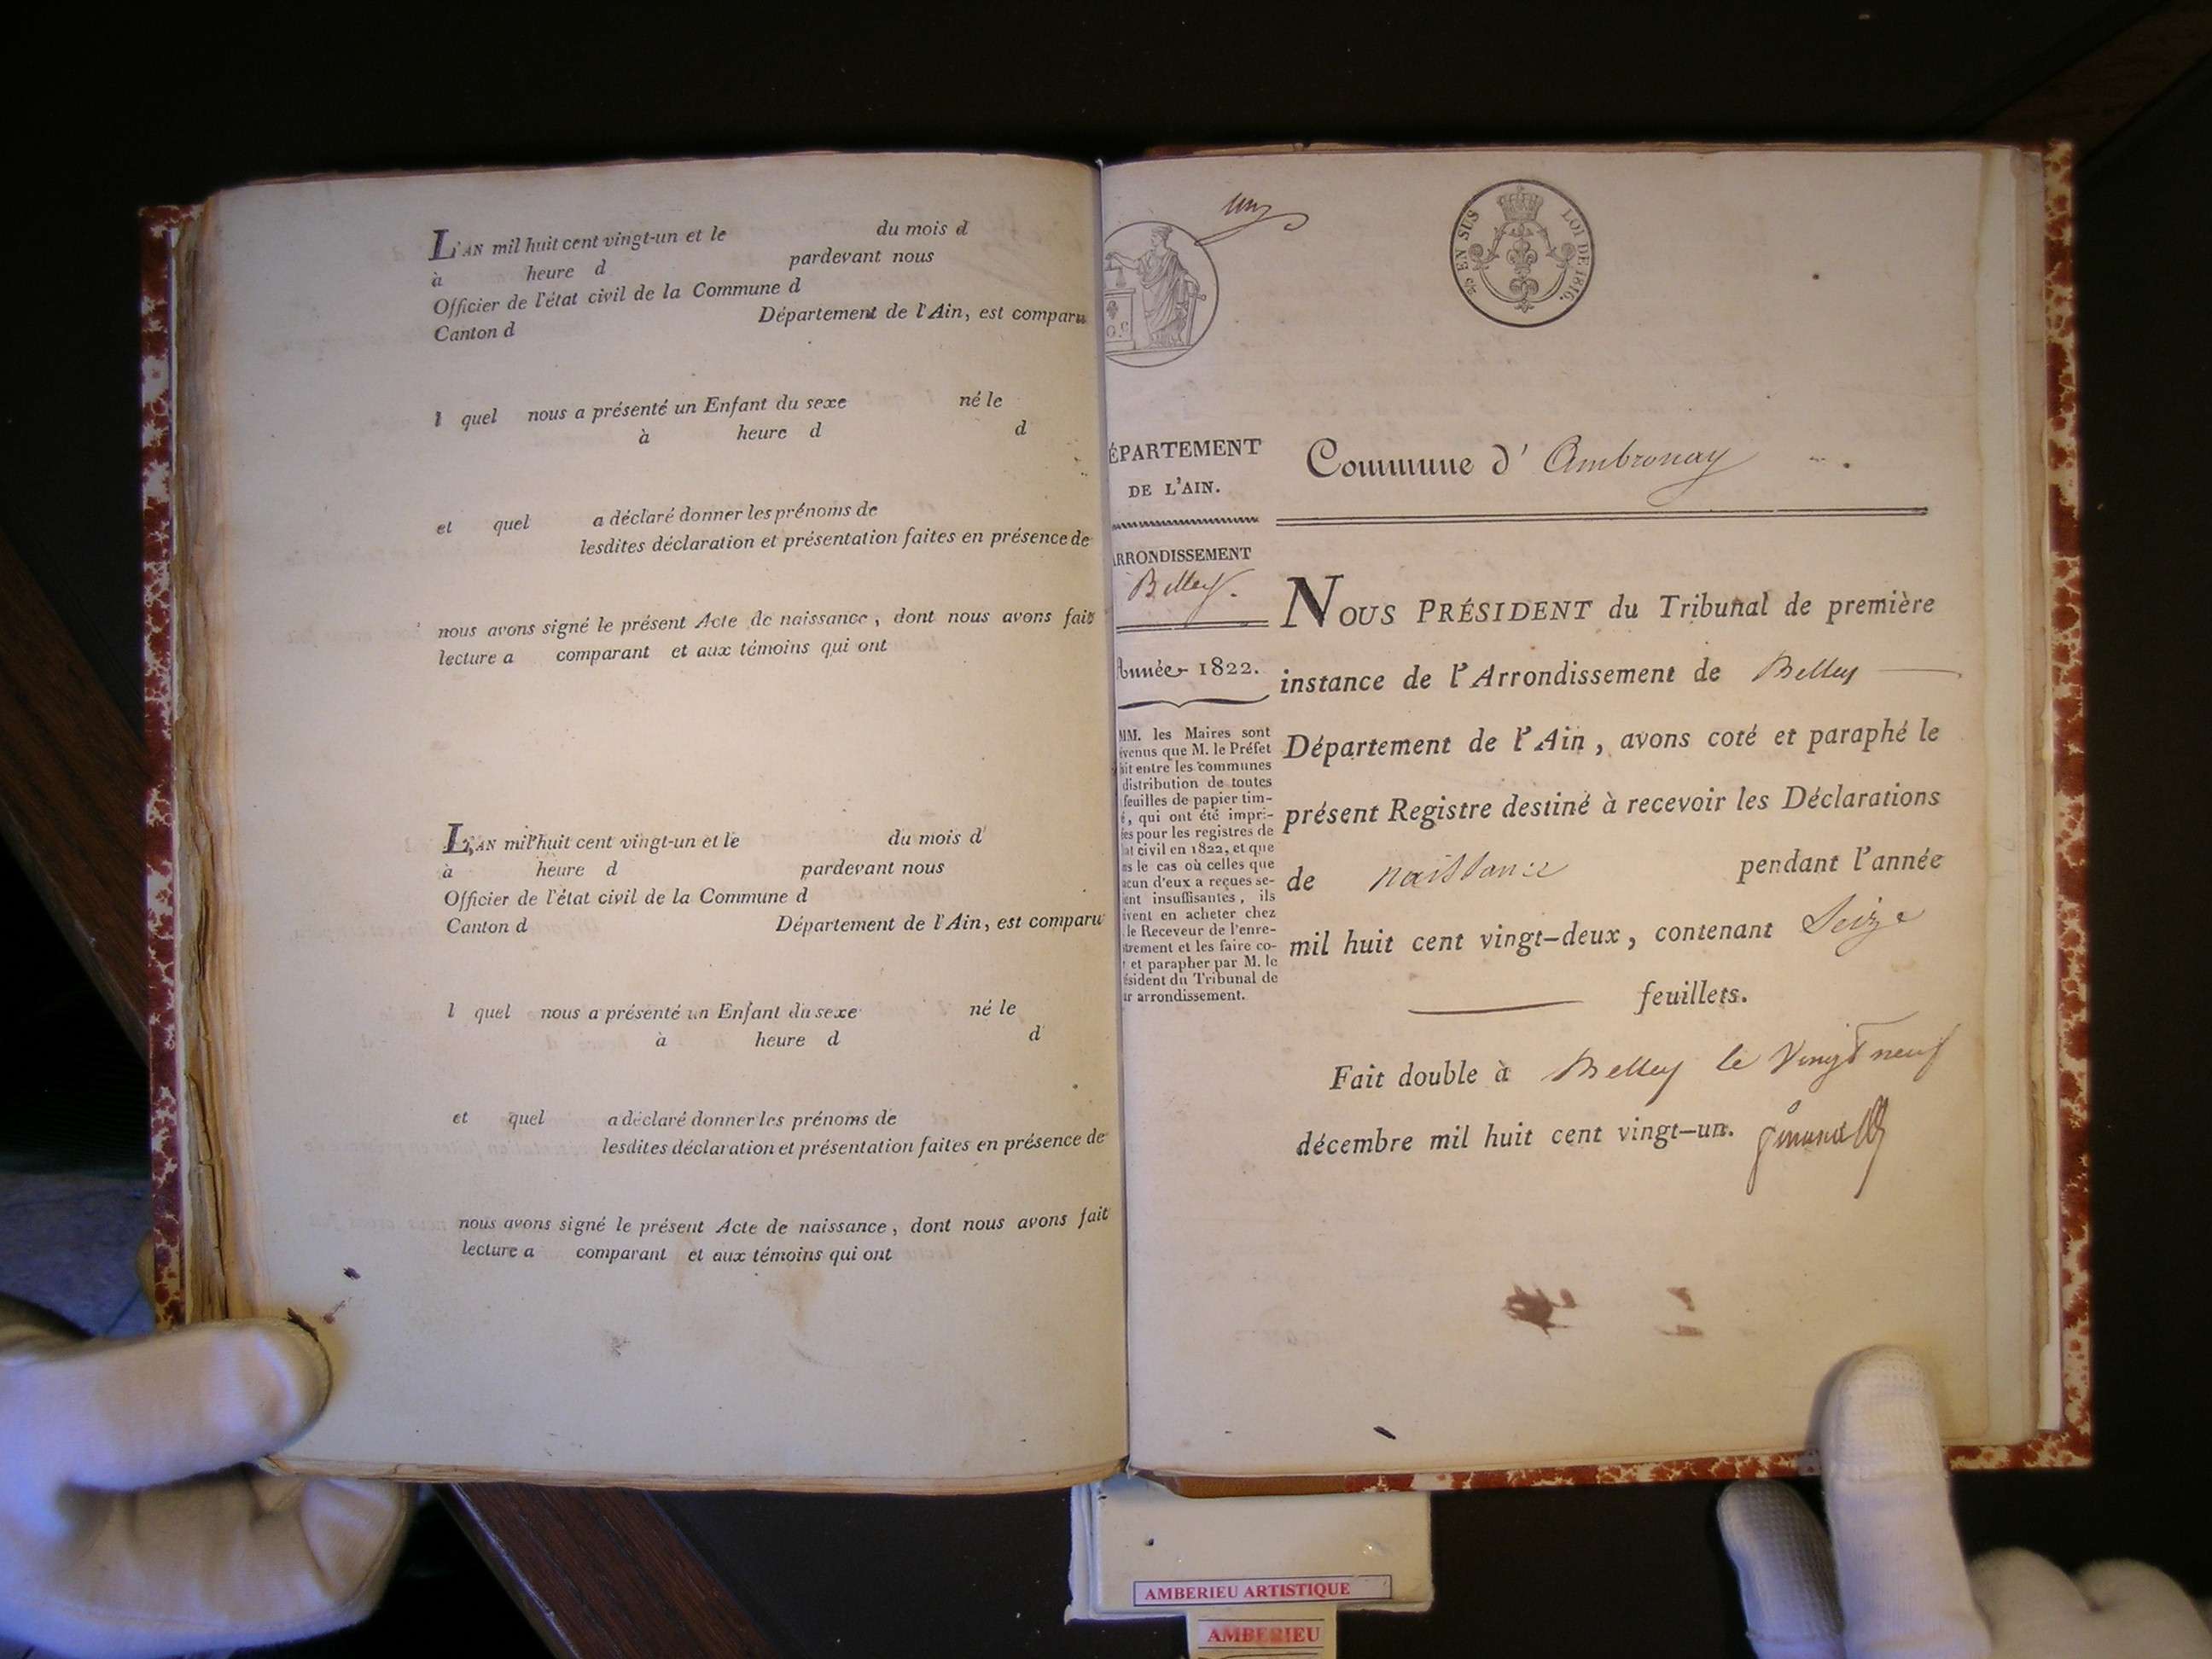 L'AN mil huit cent vingt-un et le du mois d
à heure d pardevant nous
Officier de l'état civil de la Commune d
Canton d Département de l'Ain, est comparu
l quel nous a présenté un Enfant du sexe né le
à heure d d
et quel a déclaré donner les prénoms de
lesdites déclaration et présentation faites en présence de
nous avons signé le présent Acte de naissance, dont nous avons fait
lecture a comparant et aux témoins qui ont
L'AN mil huit cent vingt-un et le du mois d
à heure d pardevant nous
Officier de l'état civil de la Commune d
Canton d Département de l'Ain, est comparu
l quel nous a présenté un Enfant du sexe né le
à heure d d
et quel a déclaré donner les prénoms de
lesdites déclaration et présentation faites en présence de
nous avons signé le présent Acte de naissance, dont nous avons fait
lecture a comparant et aux témoins qui ont
un
25 EN SUS LOI DE 1816.
ÉPARTEMENT
DE L'AIN.
RRONDISSEMENT
Belley.
Année 1822.
MM. les Maires sont
évenus que M. le Préfet
ait entre les communes
distribution de toutes
feuilles de papier tim-
é, qui ont été impri-
ées pour les registres de
at civil en 1822, et que
ns le cas où celles que
acun d'eux a reçues se-
ient insuffisantes, ils
ivent en acheter chez
le Receveur de l'enre-
strement et les faire co-
r et parapher par M. le
ésident du Tribunal de
ur arrondissement.
Commune d' Ambronay
NOUS PRÉSIDENT du Tribunal de première
instance de l'Arrondissement de Belley
Département de l'Ain, avons coté et paraphé le
présent Registre destiné à recevoir les Déclarations
de naissance pendant l'année
mil huit cent vingt-deux, contenant Seize
feuillets.
Fait double à Belley le Vingt neuf
décembre mil huit cent vingt-un.
AMBERIEU ARTISTIQUE
AMBERIEU